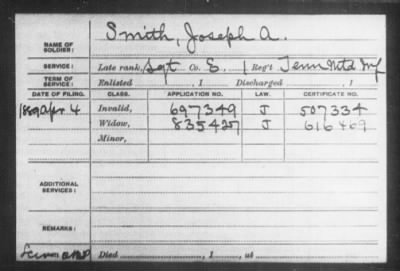 Smith, Joseph A.
NAME OF SOLDIER:
SERVICE: Late rank, Sgt Co. E. 1 Reg't Tenn Mtd Inf
TERM OF SERVICE: Enlisted , 1 Discharged , 1
DATE OF FILING. CLASS. APPLICATION NO. LAW. CERTIFICATE NO.
1889 Apr 4 Invalid, 697349 J 507334
Widow, 835427 J 616469
Minor,
ADDITIONAL SERVICES:
REMARKS:
Died , 1 , at